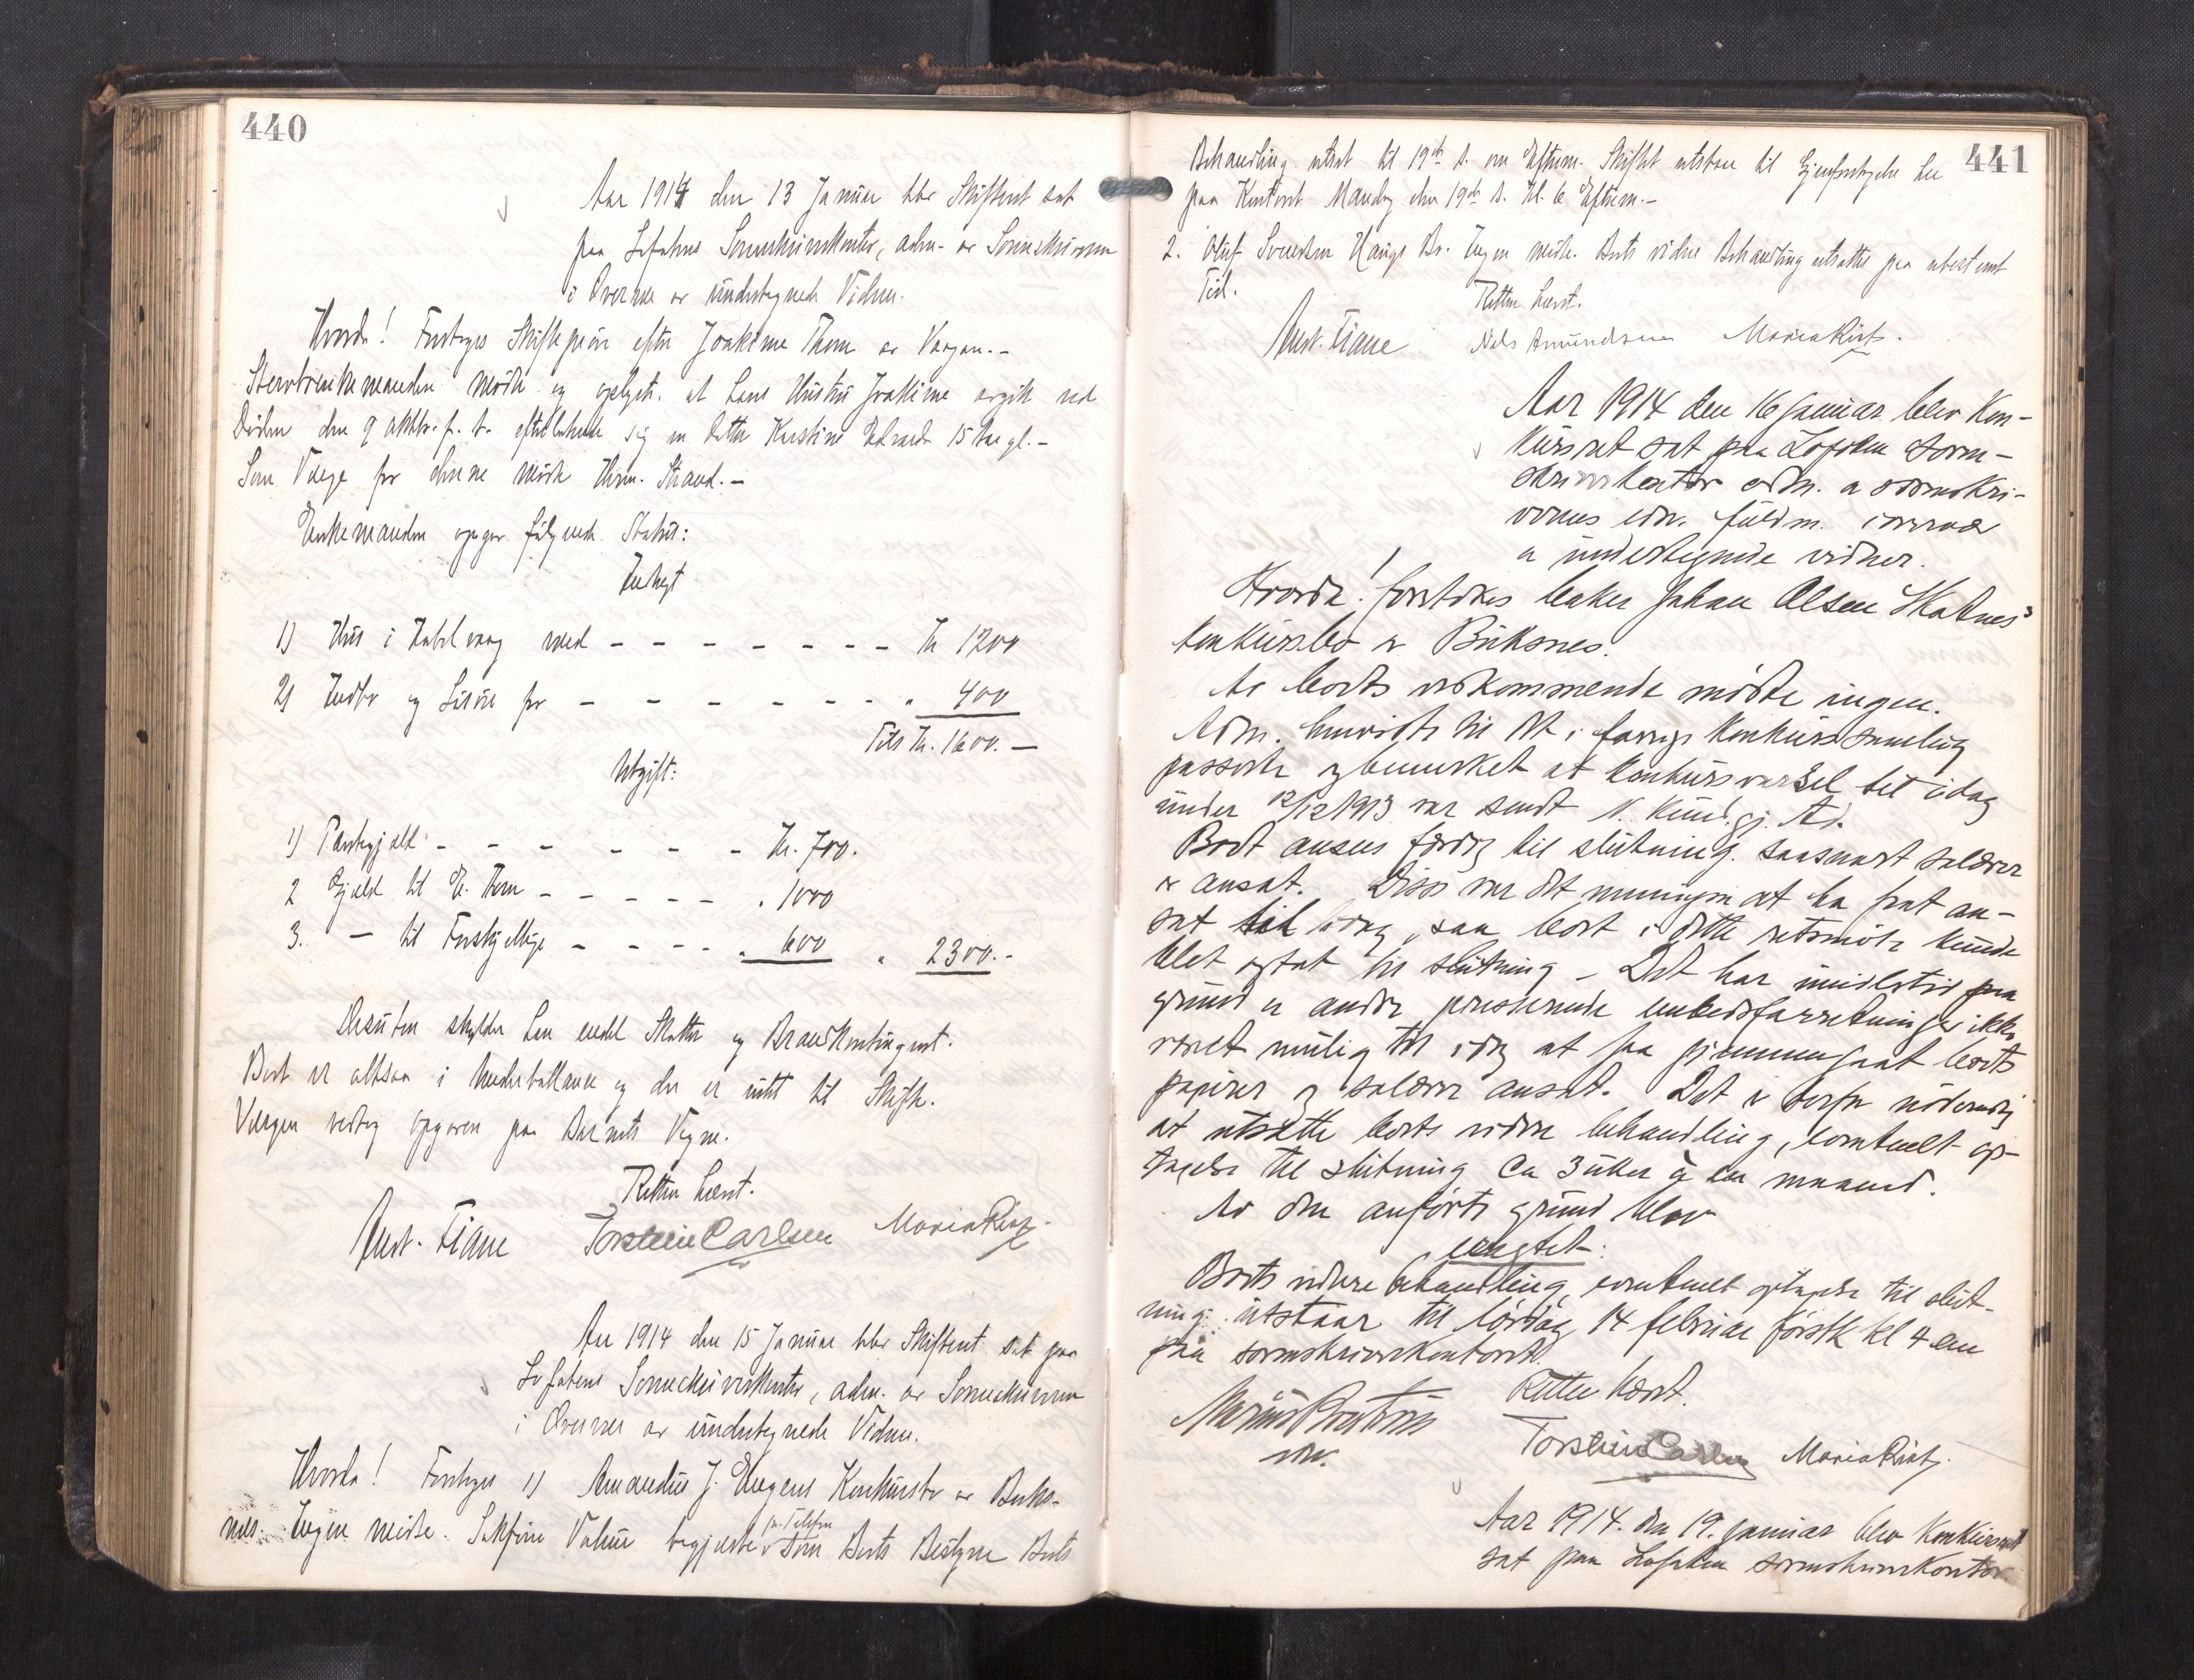 440
Aar 1914 den 13 Januar blev Skifteret sat
paa Lofotens Sorenskriverkontor, adm. av Sorenskriveren
i Overvær av undertegnede Vidner.
Hvorda! Foretoges Skifteprøve efter Joakime Thom av Vaagan.-
Stervboenkemanden mødte og oplyste at hans Hustru Joakime avgik ved
Døden den 9 oktbr. f. A. efterladende sig en Datter Kirstine 15 Aar gl.-
Som Verge for denne mødte Strand.-
Enkemanden opgav følgende Status:
Indtægt
1) Hus i Kabelvaag med - - - - - - - Kr 1200
2) Indbo og Løsøre for - - - - - - - " 400
Tils Kr. 1600.-
Utgift:
1) Pantegjæld - - - - - - Kr. 700.
2 Gjæld til E. Thom - - - - - . 1000
3. - til Forskjellige - - - - " 600 " 2300.-
Desuten skylder han endel Skatter og Brandkontingent.
Boet er altsaa i Underballance og der er intet til Skifte.
Vergen vedtog Opgaven paa Barnets Vegne.
Retten hævet.
Torstein Carlsen Maria Rist
Aar 1914 den 15 Januar blev Skifteret sat paa
Lofotens Sorenskriverkontor, adm. av Sorenskriveren
i Overvær av undertegnede Vidner.
Hvorda! Foretoges 1) Amandus J. Konkursbo av Buks-
nes. Ingen mødte. Sakfører begjærte pr. Telefon som Boets Bestyrer Boets
441
Behandling utsat til 19de ds. om Efterm. Skiftet utstaar til Gjenforetagelse her
paa Kontoret Mandag den 19de ds. Kl. 6 Efterm.-
2. Oluf Svendsen Haugs Bo. Ingen mødte. Boets videre Behandling utsattes paa ubestemt
Tid.
Retten hævet.
Nils Amundsen Maria Rist.
Aar 1914 den 16 januar blev Kon-
kursret sat paa Lofoten soren-
skriverkontor adm. av sorenskri-
verens edsv. fuldm. i overvær
av undertegnede vidner.
Hvorda! foretokes baker Johan Olsen Skotnes'
konkursbo av Buksnes.
Av boets vedkommende mødte ingen.
Adm. henviste til det i forrige konkurssamling
passerte og bemerket at konkursvarsel til idag
under 12/12 1913 var sendt N. Kundgj. Ti.
Boet ansees færdig til slutning saasnart salærer
er ansat. Disse var det meningen at ha faat an-
sat til idag, saa boet i dette retsmøte kunde
blet optat til slutning - Det har imidlertid paa
grund av andre presserende embedsforretninger ikke
været mulig til idag at faa gjennemgaat boets
papirer og salærer ansat. Det er derfor nødvendig
at utsætte boets videre behandling, eventuelt op-
tagelse til slutning ca 3 uker à en maaned.
Av den anførte grund blev
eragtet:
Boets videre behandling, eventuelt optagelse til slut-
ning utstaar til lørdag 14 februar førstk kl 4 em
paa sorenskriverkontoret.
Retten hævet.
Torstein Carlsen Maria Rist.
Aar 1914. den 19. januar blev Konkursret
sat paa Lofoten sorenskriverkontor